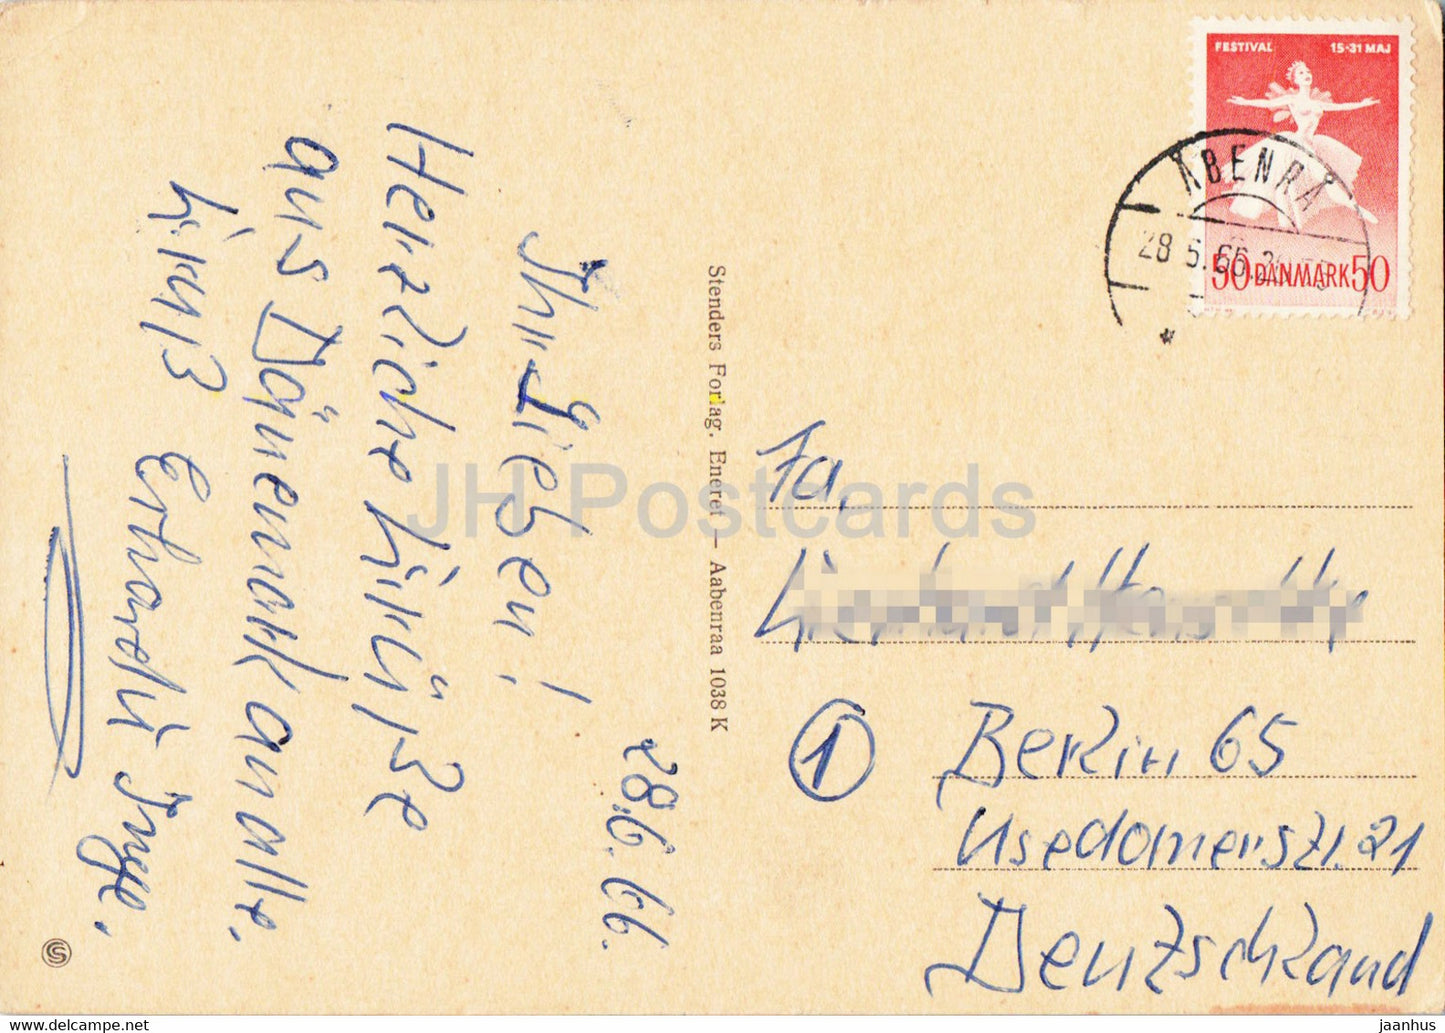 FESTIVAL 15-31 MAJ
ÅBENRÅ
28.5.66.
50 DANMARK 50
28.6.66.
Ihr Lieben!
Herzliche Grüße
aus Dänemark an alle.
Gruß Erhardt Inge.
Stenders Forlag. Eneret — Aabenraa 1038 K
Fa.
1 Berlin 65
Usedomerstr. 21
Deutschland
JH Postcards
jaanhus — https://www.delcampe.net